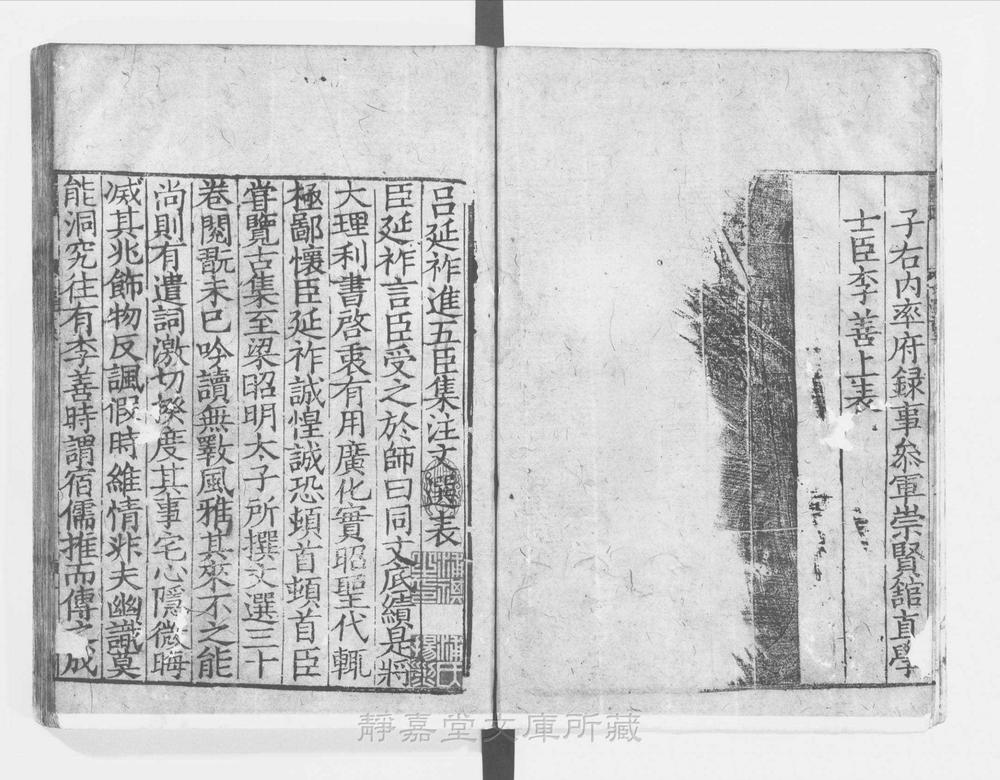 子右内率府録事叅軍崇賢舘直學
士臣李善上表
吕延祚進五臣集注文選表
臣延祚言臣受之於師曰同文底績是將
大理利書啓衷有用廣化實昭聖代輙
極鄙懷臣延祚誠惶誠恐頓首頓首臣
甞覽古集至梁昭明太子所撰文選三十
卷閱翫未已吟讀無斁風雅其來不之能
尚則有遺詞激切揆度其事宅心隱微晦
滅其兆飾物反諷假時維情非夫幽識莫
能洞究往有李善時謂宿儒推而傳之成
靜嘉堂文庫所藏